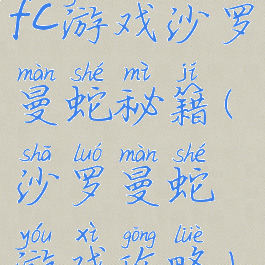 fc游戏沙罗
màn shé mì jí
曼蛇秘籍(
shā luó màn shé
沙罗曼蛇
yóu xì gōng lüè
游戏攻略)